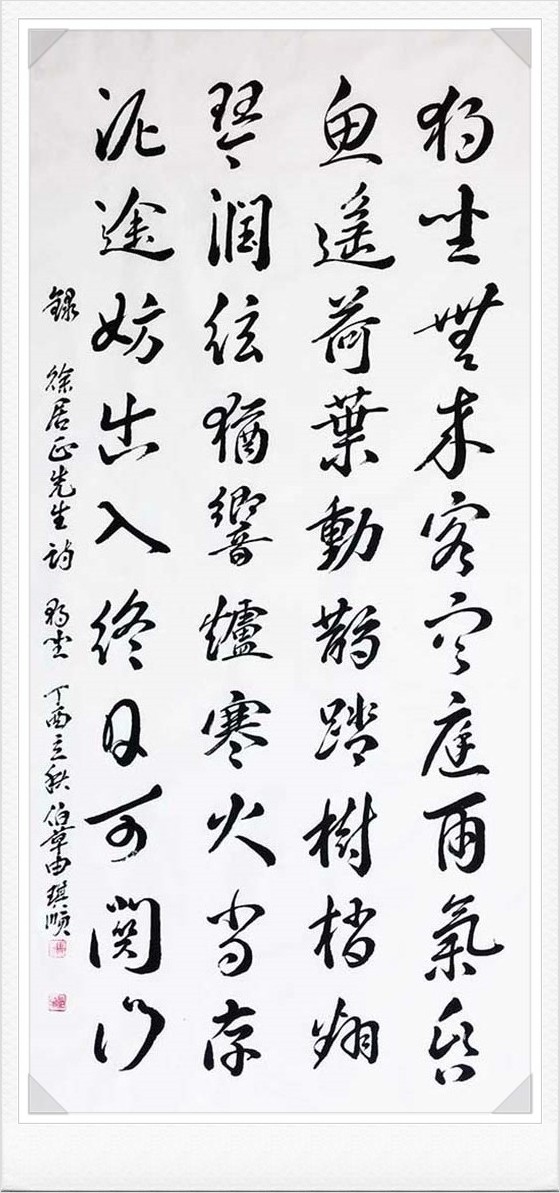 獨坐無來客空庭雨氣昏
魚遙荷葉動鵲踏樹梢翻
琴潤絃猶響爐寒火尚存
泥途妨出入終日可關門
錄 徐居正先生詩 獨坐 丁酉立秋 伯章 琪順